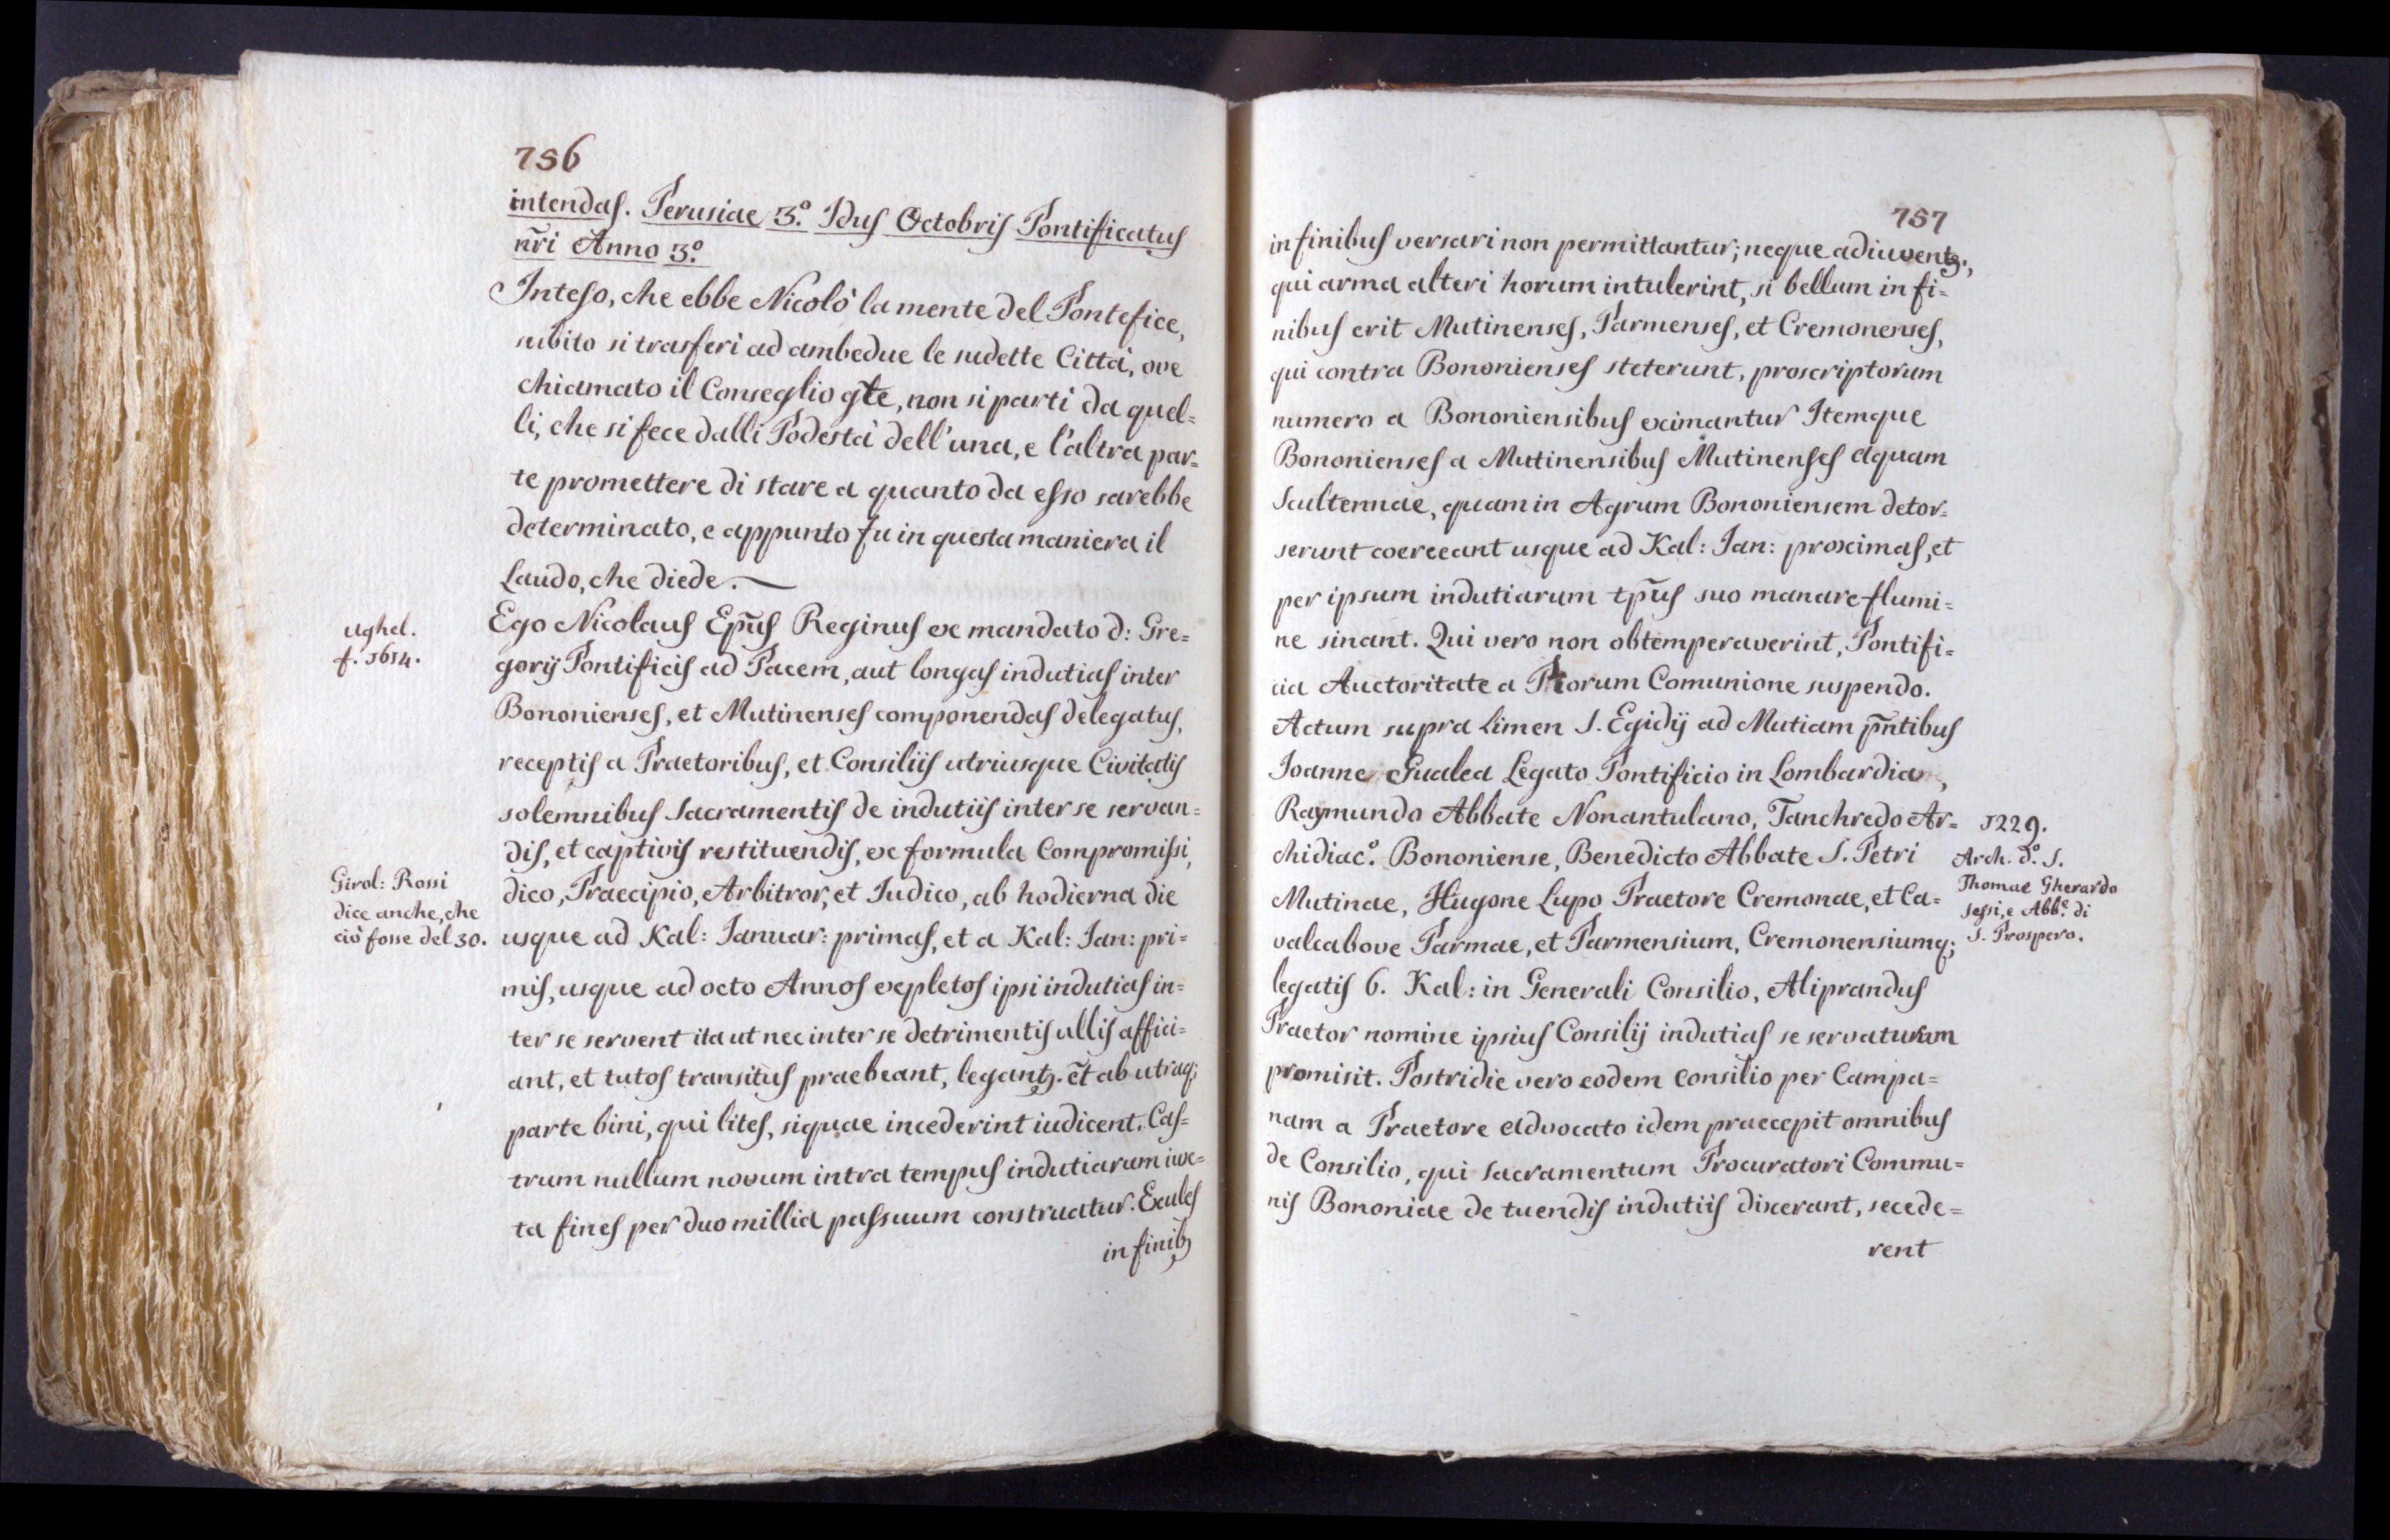 756
intendas. Perusiae 3.º Idus Octobris Pontificatus
nr̃i Anno 3.º
Inteso, che ebbe Nicolò la mente del Pontefice,
subito si trasferì ad ambedue le sudette Città, ove
chiamato il Conseglio gñle, non si partì da quel=
li, che si fece dalli Podestà dell'una, e l'altra par=
te promettere di stare a quanto da esso sarebbe
determinato, e appunto fu in questa maniera il
Laudo, che diede.
Ughel.
f. 1614.
Ego Nicolaus Epũs Reginus ex mandato d: Gre=
gorij Pontificis ad Pacem, aut longas indutias inter
Bononienses, et Mutinenses componendas delegatus,
receptis a Praetoribus, et Consiliis utriusque Civitatis
solemnibus Sacramentis de indutiis inter se servan=
dis, et captivis restituendis, ex formula Compromissi,
Girol: Rossi
dice anche, che
ciò fosse del 30.
dico, Praecipio, Arbitror, et Iudico, ab hodierna die
usque ad Kal: Ianuar: primas, et a Kal: Ian: pri=
mis, usque ad octo Annos expletos ipsi indutias in=
ter se servent ita ut nec inter se detrimentis ullis affici=
ant, et tutos transitus praebeant, legantꝫ. et̃ ab utraq;
parte bini, qui lites, siquae incederint iudicent. Cas=
trum nullum novum intra tempus indutiarum iux=
ta fines per duo millia passuum construatur. Exules
in finibꝫ
757
in finibus versari non permittantur; neque adiuventꝫ.,
qui arma alteri horum intulerint, si bellum in fi=
nibus erit Mutinenses, Parmenses, et Cremonenses,
qui contra Bononienses steterunt, proscriptorum
numero a Bononiensibus eximantur Itemque
Bononienses a Mutinensibus Mutinenses aquam
Scultennae, quam in Agrum Bononiensem detor=
serunt coerceant usque ad Kal: Ian: proximas, et
per ipsum indutiarum tp̃us suo manare flumi=
ne sinant. Qui vero non obtemperaverint, Pontifi=
cia Auctoritate a Piorum Comunione suspendo.
Actum supra Limen S. Egidij ad Mutiam pñtibus
Ioanne Gualea Legato Pontificio in Lombardia,
Raymundo Abbate Nonantulano, Tanchredo Ar=
chidiac.º Bononiense, Benedicto Abbate S. Petri
Mutinae, Hugone Lupo Praetore Cremonae, et Ca=
valcabove Parmae, et Parmensium, Cremonensiumq;
1229.
Arch. d.º S.
Thomae Gherardo
Sessi, e Abb.e di
S. Prospero.
legatis 6. Kal: in Generali Consilio, Aliprandus
Praetor nomine ipsius Consilij indutias se servaturum
promisit. Postridie vero eodem Consilio per Campa=
nam a Praetore advocato idem praecepit omnibus
de Consilio, qui Sacramentum Procuratori Commu=
nis Bononiae de tuendis indutiis dixerant, secede=
rent